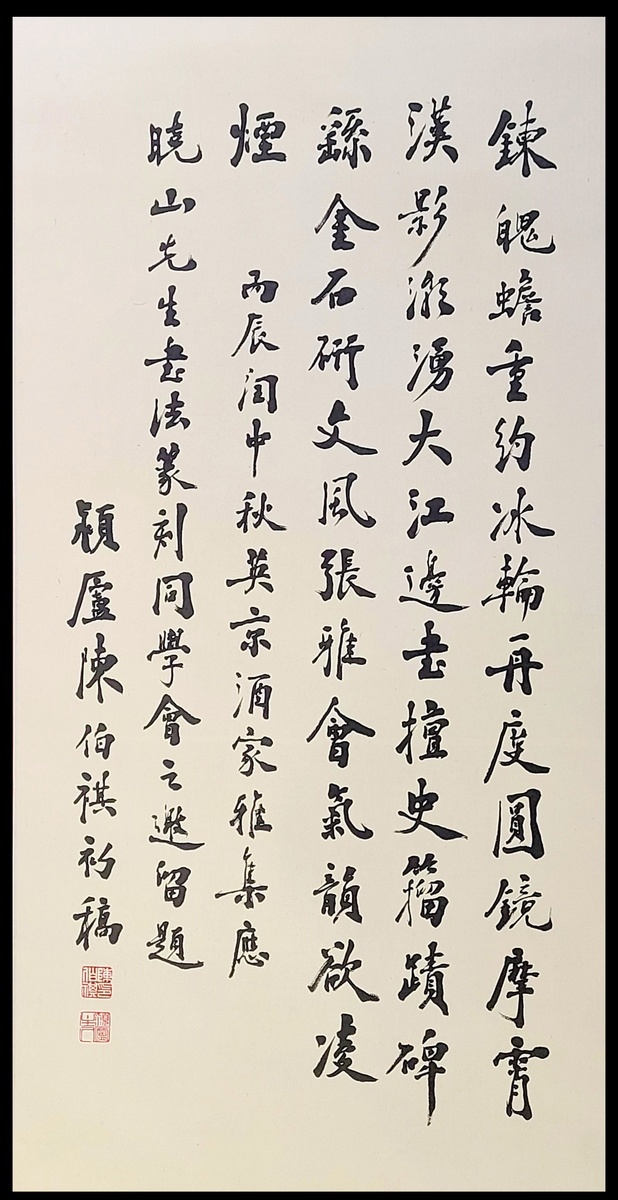 鍊魄蟾重約冰輪再度圓鏡摩霄
漢影湧大江邊書擅史籀蹟碑
繇金石研文風張雅會氣韻欲凌
煙 丙辰閏中秋英京酒家雅集應
曉山先生書法篆刻同學會之邀留題
穎廬陳伯祺初稿
陳印伯祺